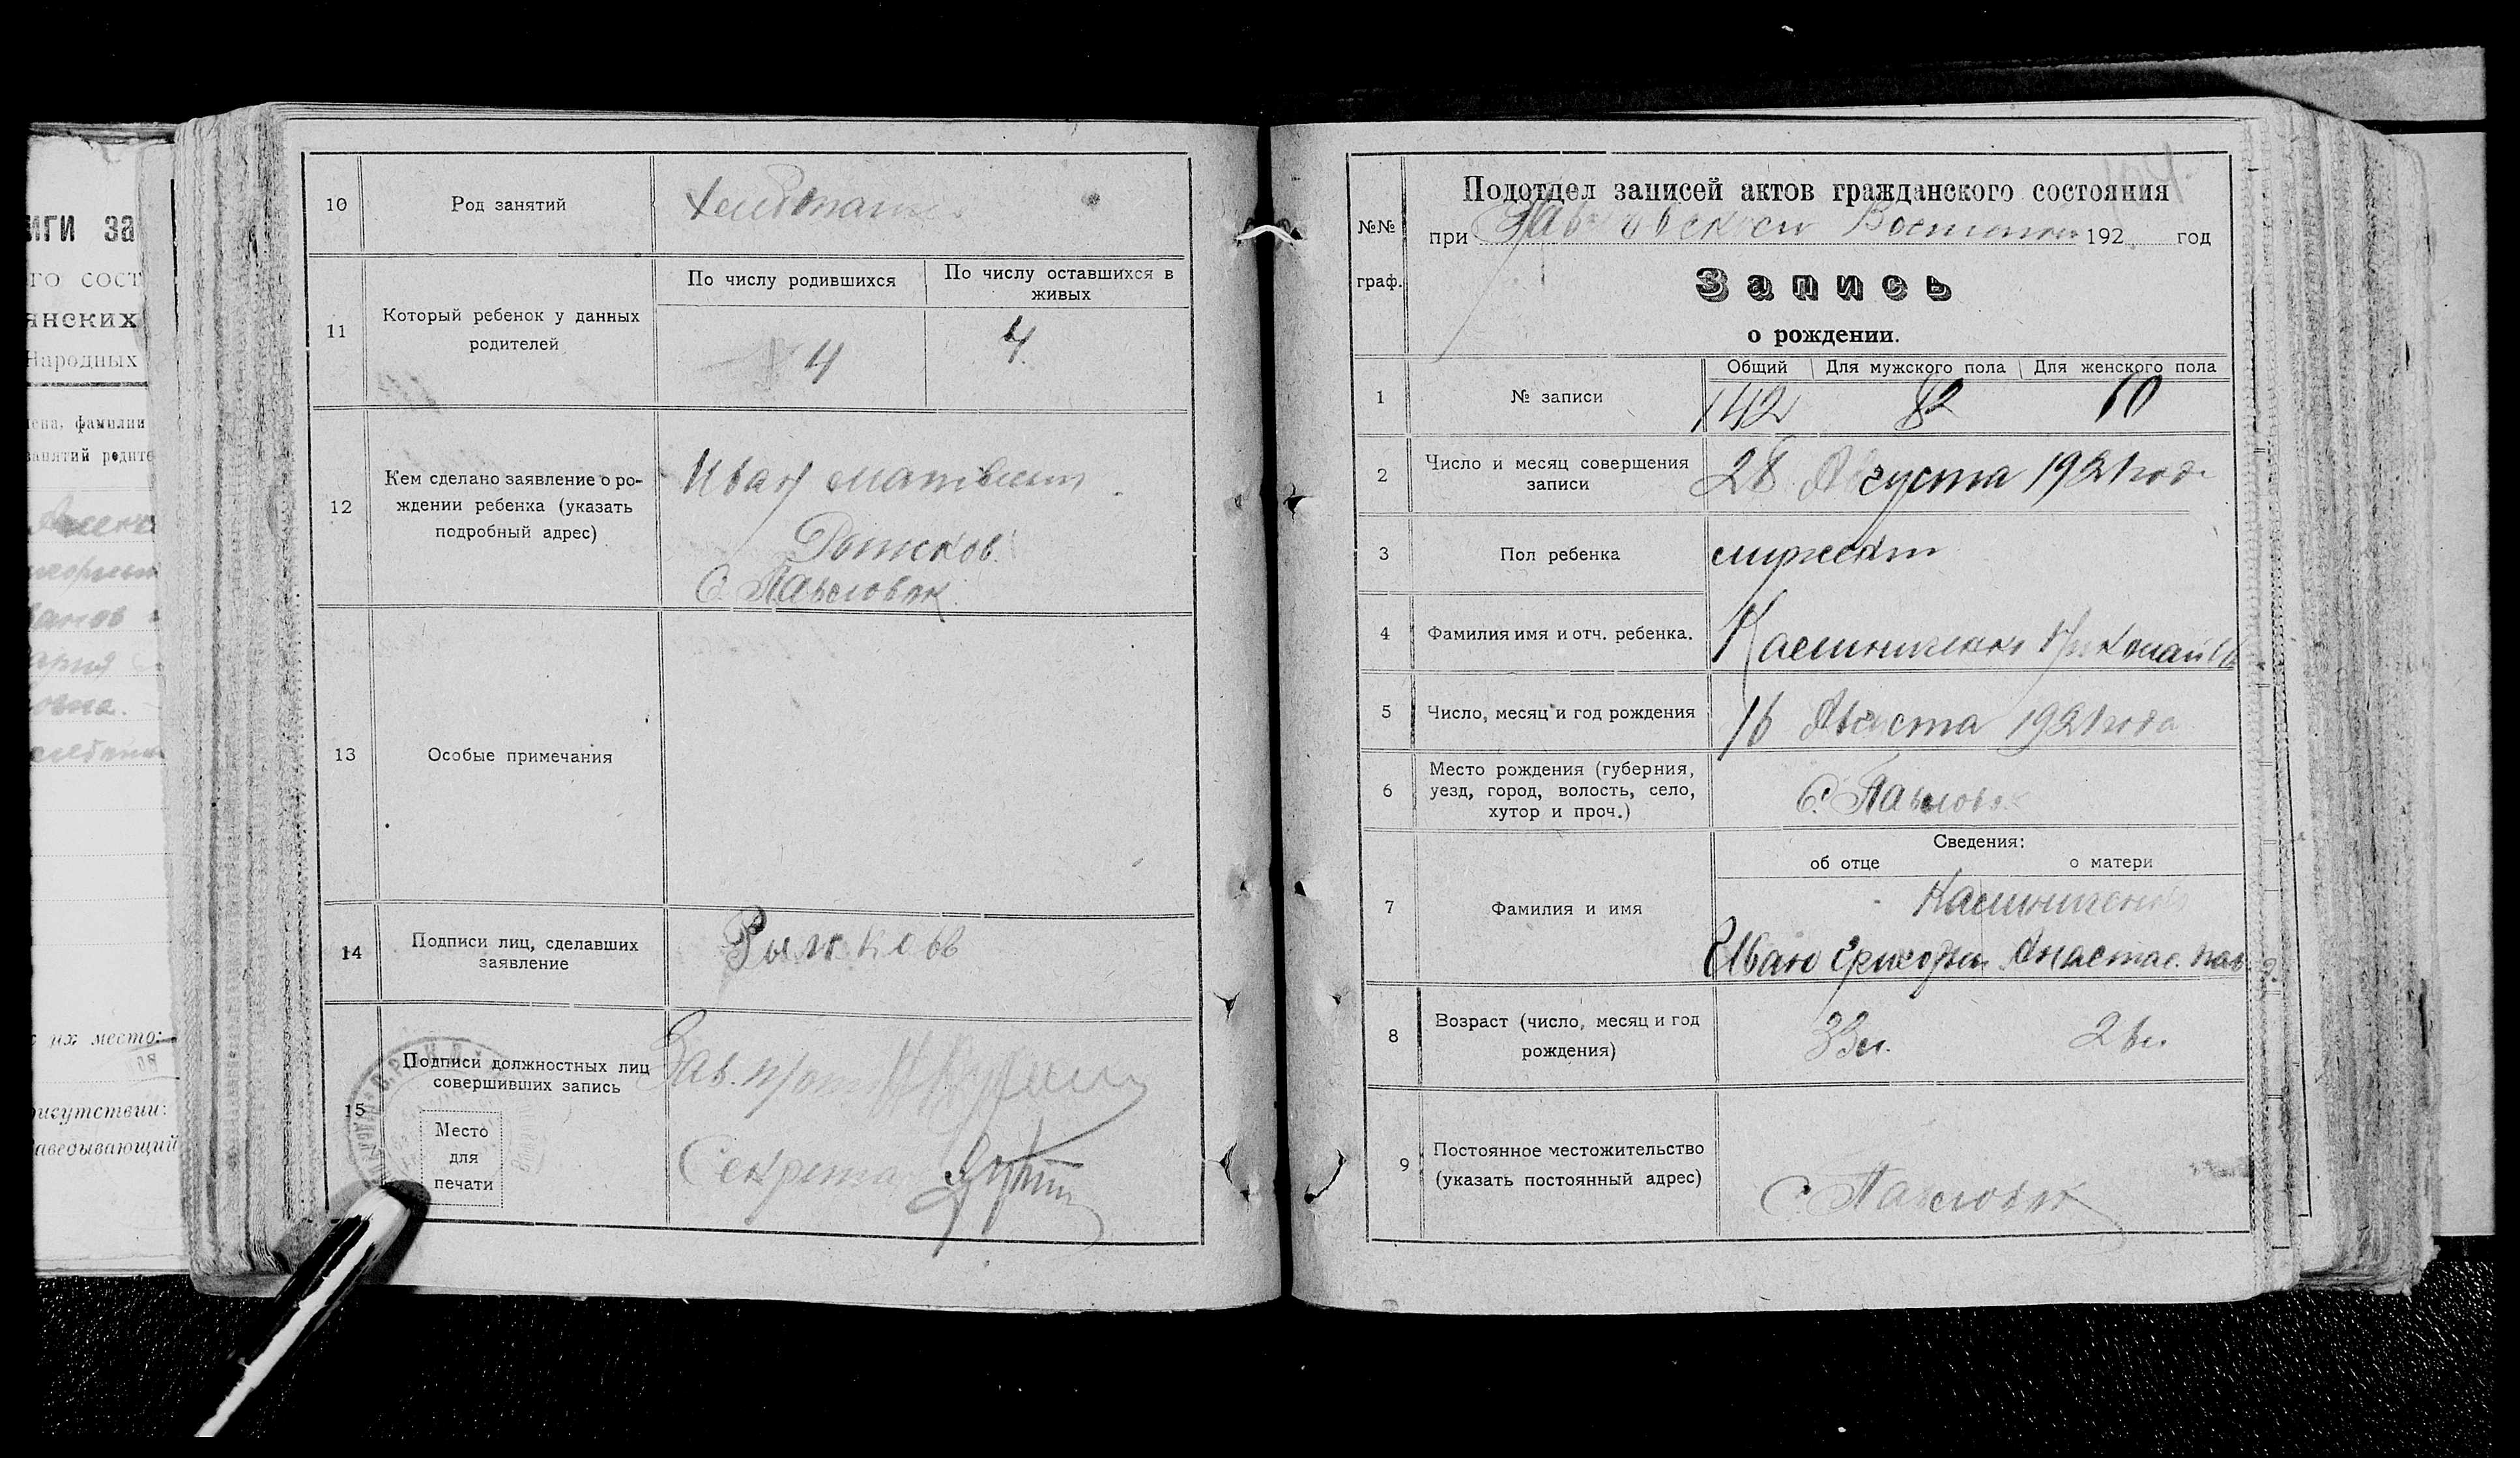 иги за
го сост
янских
Народных
ена, фамилии
занятий родите
анов
ария
овна.
их место:
рисутствии:
аведывающий
10 Род занятий Хлебопаш.
11 Который ребенок у данных родителей
По числу родившихся По числу оставшихся в живых
4 4
12 Кем сделано заявление о ро-
ждении ребенка (указать
подробный адрес)
Иван Матвеит
Рыжков.
С. Павловск
13 Особые примечания
14 Подписи лиц, сделавших
заявление
Рыжковв
15 Подписи должностных лиц
совершивших запись
Зав.
Секрета
Место
для
печати
Подотдел записей актов гражданского состояния
№№ при Павловском 192 год
граф.
Запись
о рождении.
Общий Для мужского пола Для женского пола
1 № записи 142 82 60
2 Число и месяц совершения
записи
28 Августа 1921 года
3 Пол ребенка мужескт
4 Фамилия имя и отч. ребенка. Калиниченко Николай Ив
5 Число, месяц и год рождения 16 Августа 1921 года
6 Место рождения (губерния,
уезд, город, волость, село,
хутор и проч.)
С. Павловск
Сведения:
об отце о матери
7 Фамилия и имя
Калиниченко
Иван Григорьев Анастас. Пав
8 Возраст (число, месяц и год
рождения)
33 л. 26 л.
9 Постоянное местожительство
(указать постоянный адрес)
С. Павловск